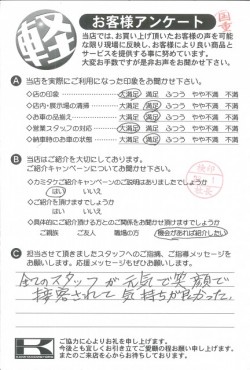 軽
お客様アンケート
当店では、お買い上げ頂いたお客様の声を可能
な限り現場に反映し、お客様により良い商品と
サービスを提供する事に努めています。
大変お手数ですが是非お声をお聞かせ下さい。
A 当店を実際にご利用になった印象をお聞かせ下さい。
◇店の印象 大満足 満足 ふつう やや不満 不満
◇店内・展示場の清掃 大満足 満足 ふつう やや不満 不満
◇お車の品揃え 大満足 満足 ふつう やや不満 不満
◇営業スタッフの対応 大満足 満足 ふつう やや不満 不満
◇納車時のお車の状態 大満足 満足 ふつう やや不満 不満
B 当店はご紹介を大切にしております。
ご紹介キャンペーンについてお聞かせ下さい。
◇カミタケご紹介キャンペーンのご説明はありましたでしょうか
はい いいえ
◇ご紹介を頂けますでしょうか
はい いいえ
◇具体的にご紹介頂ける方とのご関係をお聞かせ頂けますでしょうか
ご親族 ご友人 職場の方 機会があれば紹介したい
C 担当させて頂きましたスタッフへのご指摘、ご指導メッセージを
お願いします。応援メッセージもぜひお願いします。
全てのスタッフが元気で笑顔で
接客されて気持ちが良かった。
K
ご協力に心よりお礼を申し上げます。
今後とも宜しくお引き立てご愛顧の程お願い申し上げます。
またのご来店を心からお待ちしております。